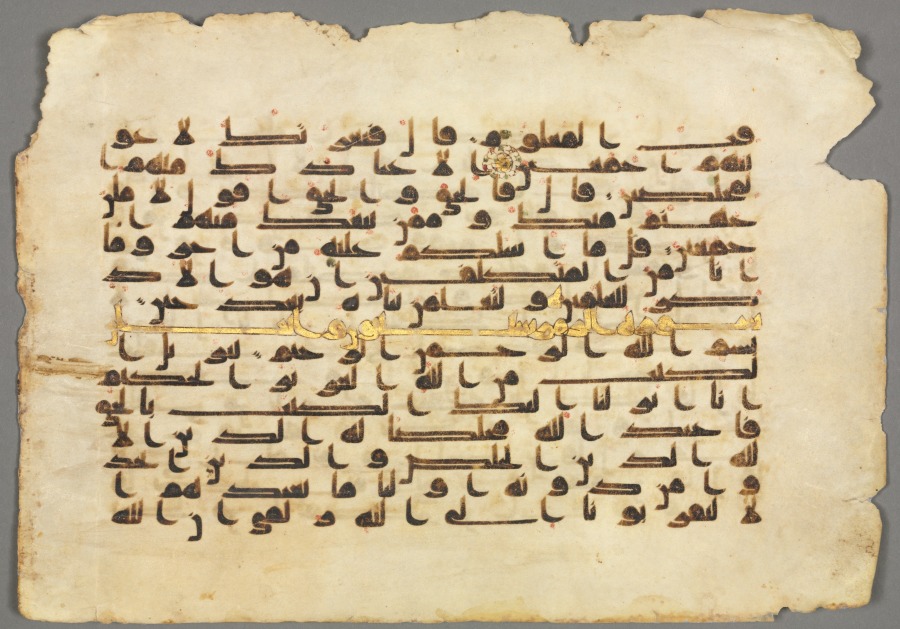 قت المعلوم قال فبعزتك لاغو
ينهم اجمعين الا عبادك منهم ا
لمخلصين قال فالحق والحق اقول لاملن
جهنم منك وممن تبعك منهم ا
جمعين قل ما اسلكم عليه من اجر وما
انا من المتكلفين ان هو الا ذ
كر للعلمين ولتعلمن نباه بعد حين
سوره الزمر
بسم الله الرحمن الرحيم تنزيل ا
لكتب من الله العزيز الحكيم
انا انزلنا اليك الكتب بالحق
فاعبد الله مخلصا له الدين الا
لله الدين الخالص والذين اتخذ
وا من دونه اوليا ما نعبدهم ا
لا ليقربونا الى الله زلفى ان الله